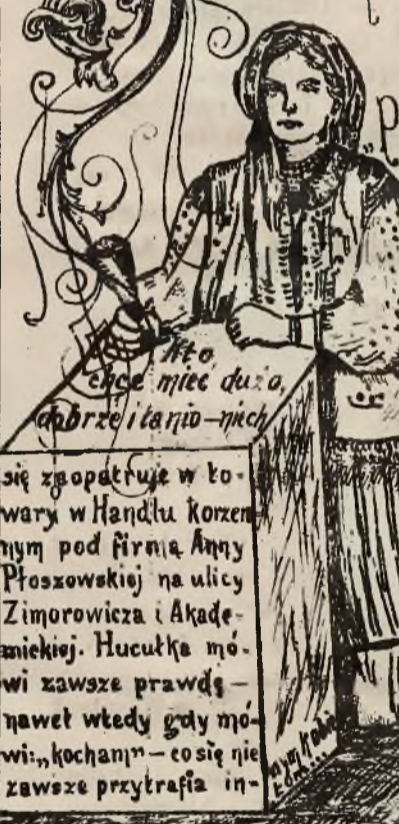 Kto
chce mieć dużo,
dobrze i tanio—niech
się zaopatruje w to-
wary w Handlu korzen
nym pod firmą Anny
Płoszowskiej na ulicy
Zimorowicza i Akade-
mickiej. Hucułka mó-
wi zawsze prawdę —
nawet wtedy gdy mó-
wi: „kocham” — co się nie
zawsze przytrafia in-
nym kobie
tom
„P